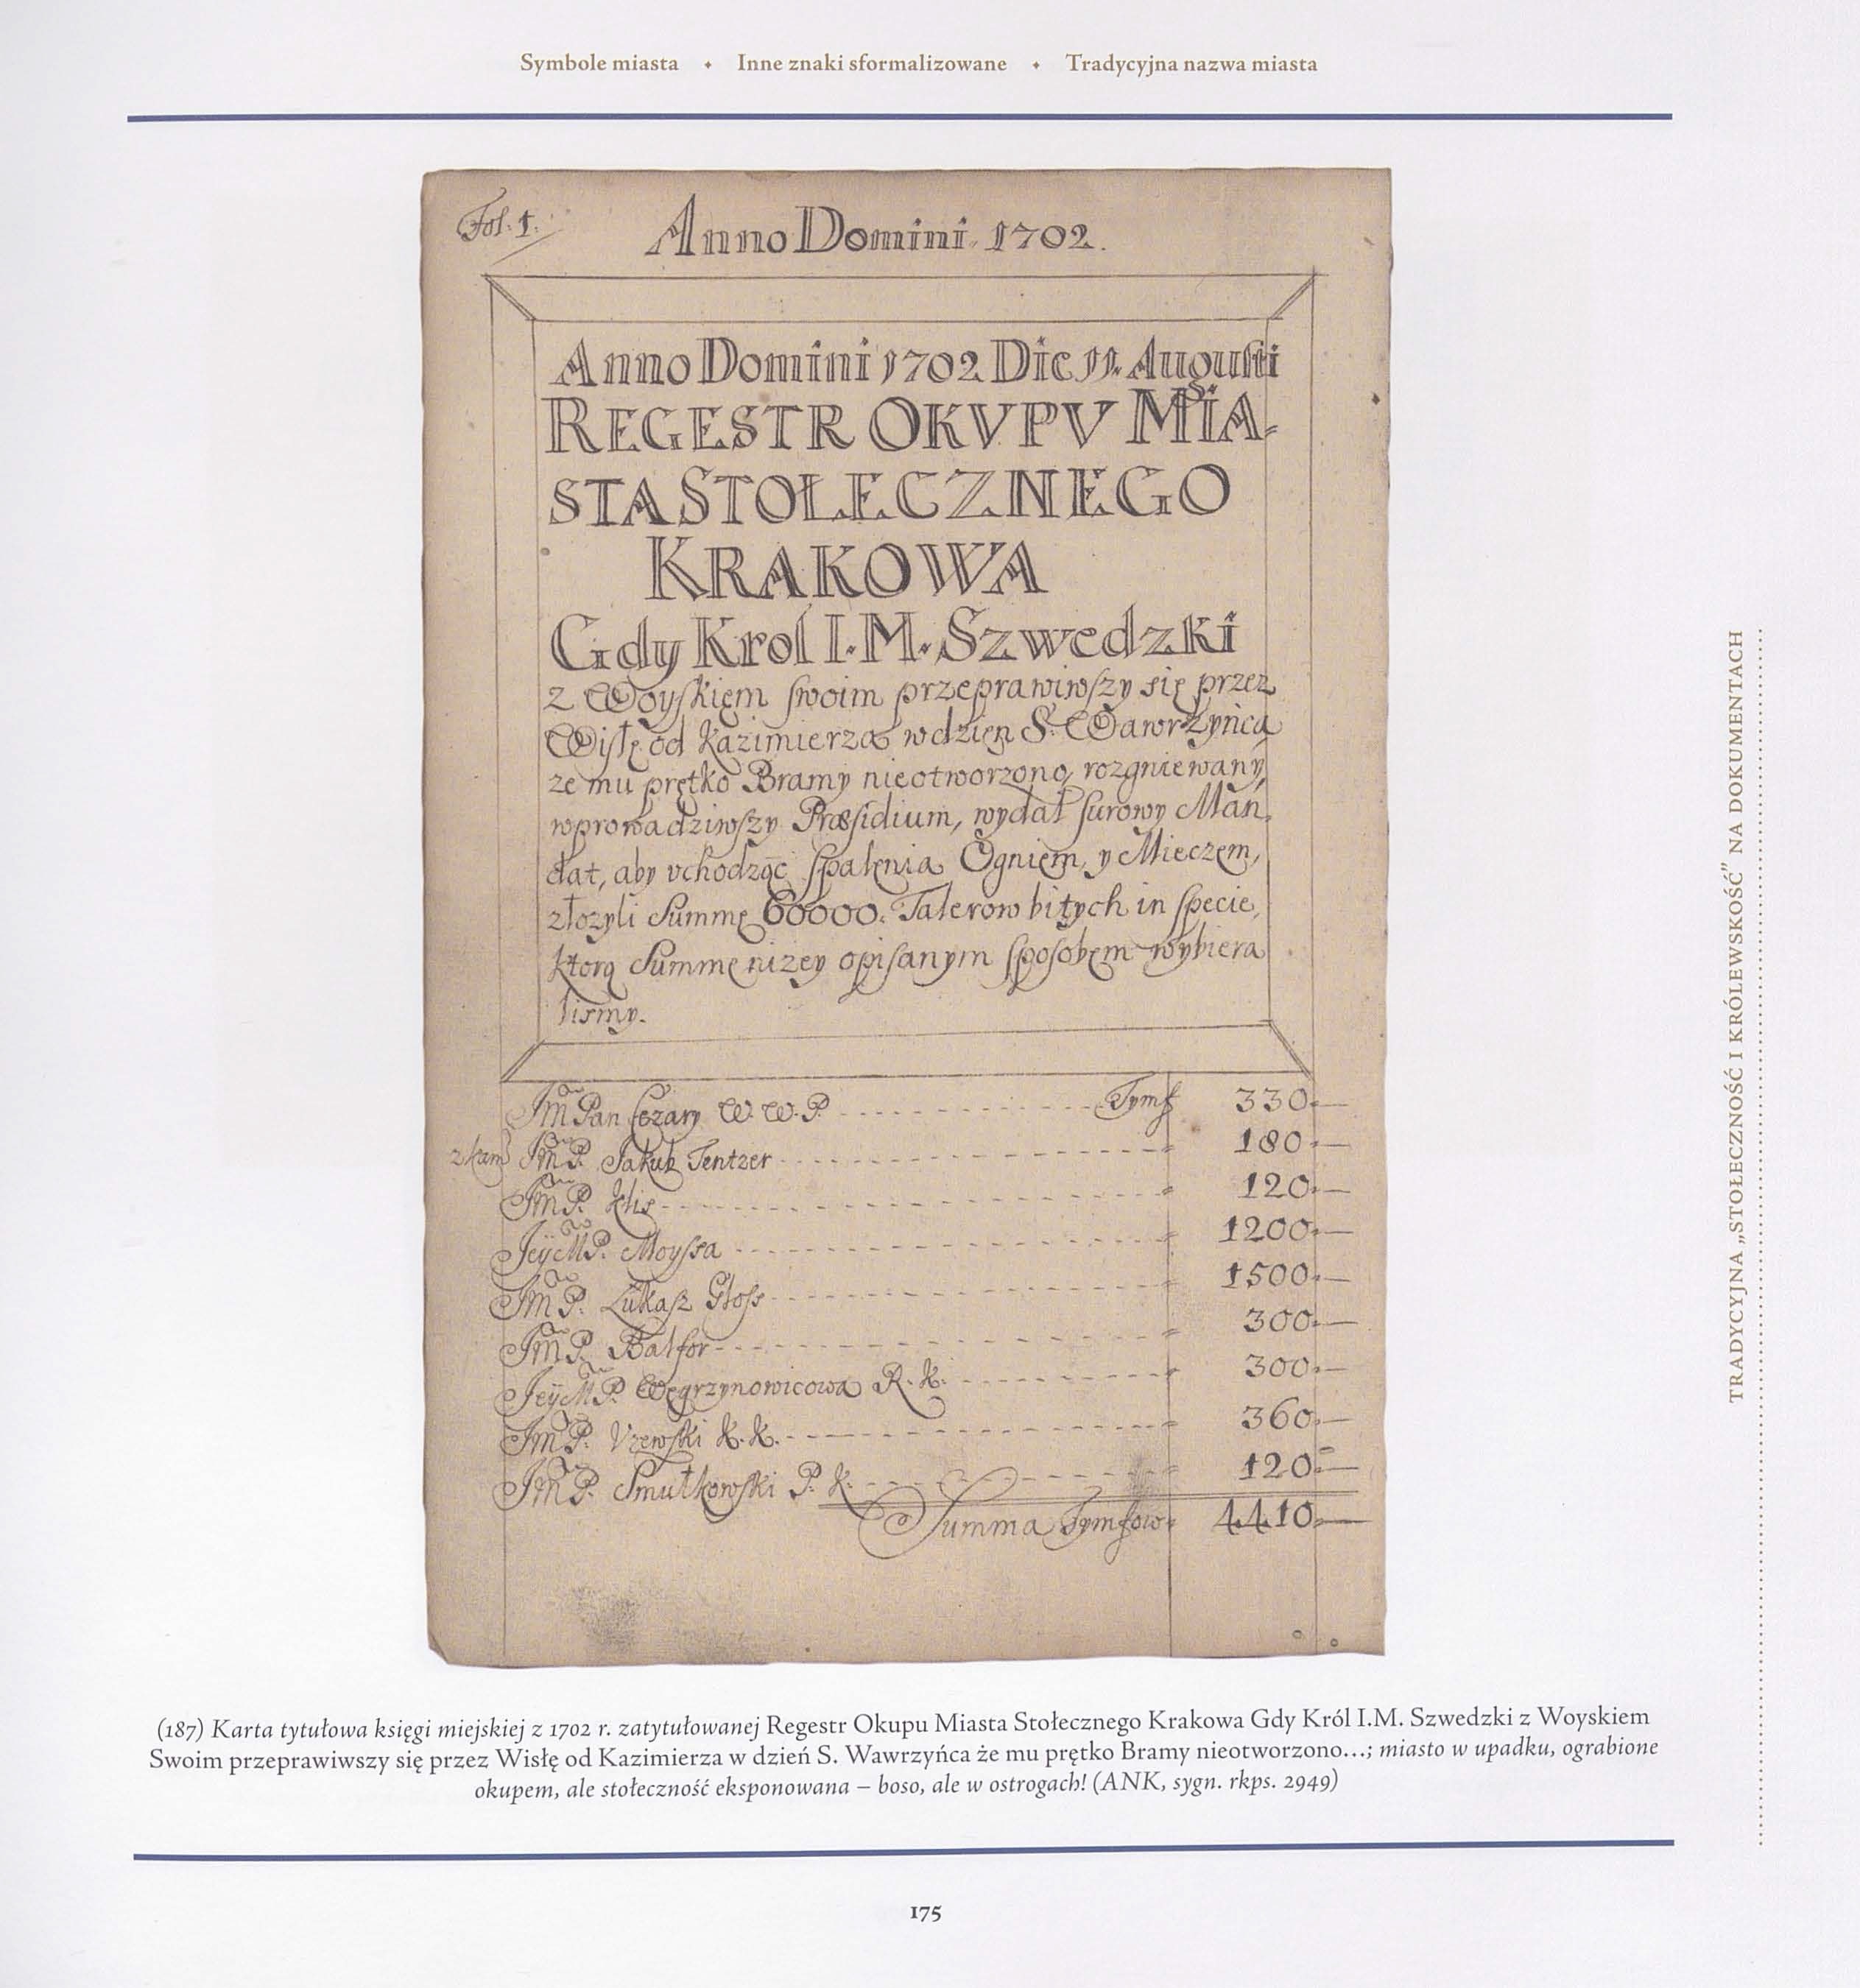 Symbole miasta ⬩ Inne znaki sformalizowane ⬩ Tradycyjna nazwa miasta
Fol. 1.
Anno Domini 1702.
Anno Domini 1702 Die 11. Augusti
REGESTR OKVPV MIA-
STA STOŁECZNEGO
KRAKOWA
Gdy Krol I. M. Szwedzki
z Woyskiem swoim przeprawiwszy się przez
Wisłę od Kazimierza w dzien S. Wawrzyńca
ze mu prętko Bramy nieotworzono, rozgniewany,
wprowadziwszy Præsidium, wydał surowy Man,
dat, aby vchodząc spalenia Ogniem, y Mieczem,
złozyli Summę 60000. Talerow bitych in specie,
ktorą Summę nizey opisanym sposobem wybiera
lismy.
Jm Pan Cezary W. W. P. Tymf 330
Jm P. Jakub Tentzer 180
Jm P. Klis 120
Jey M P. Moyssa 1200
Jm P. Łukasz Głoss 1500
Jm P. Balfor 300
Jey M P. Węgrzynowicowa R. K. 300
Jm P. Vzewski K. K. 360
Jm P. Smutkowski P. K. 120
Summa Tymfow 4410
(187) Karta tytułowa księgi miejskiej z 1702 r. zatytułowanej Regestr Okupu Miasta Stołecznego Krakowa Gdy Król I.M. Szwedzki z Woyskiem
Swoim przeprawiwszy się przez Wisłę od Kazimierza w dzień S. Wawrzyńca że mu prętko Bramy nieotworzono…; miasto w upadku, ograbione
okupem, ale stołeczność eksponowana – boso, ale w ostrogach! (ANK, sygn. rkps. 2949)
TRADYCYJNA „STOŁECZNOŚĆ I KRÓLEWSKOŚĆ” NA DOKUMENTACH
175